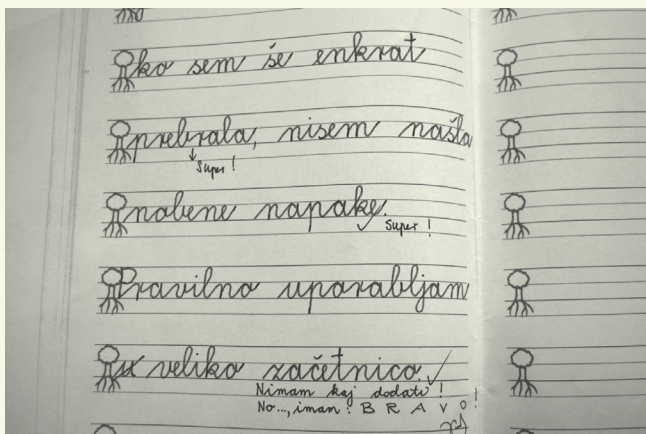 ko sem še enkrat
prebrala, nisem našla
Super!
nobene napake.
Super!
Pravilno uporabljam
veliko začetnico.
Nimam kaj dodati!
No..., imam: BRAVO!